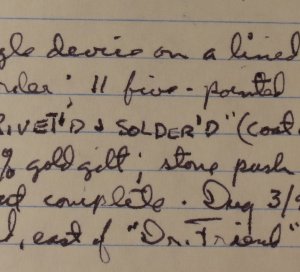 gle device on a lined
nder; 11 five-pointed
RIVET'D & SOLDER'D" (coat
% gold gilt; stone push
complete. Dug 3/9
, east of "Dr. Friend"